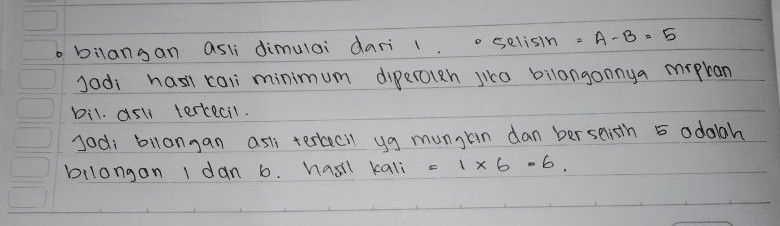 • bilangan asli dimulai dari 1. • selisih = A - B = 5
Jadi hasil kali minimum diperoleh jika bilangannya mrpkan
bil. asli terkecil.
Jadi bilangan asli terkecil yg mungkin dan berselisih 5 adalah
bilangan 1 dan 6. hasil kali = 1 × 6 = 6.